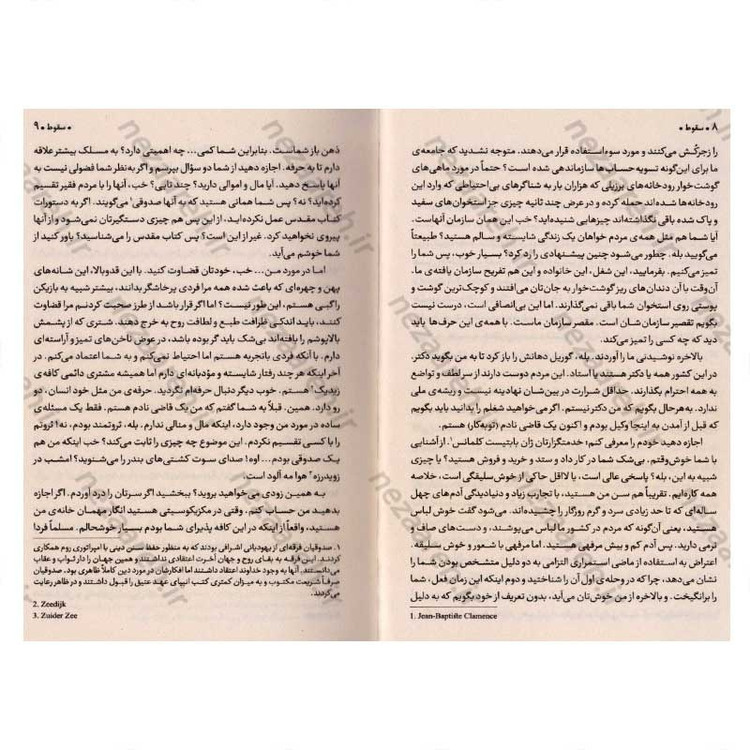 ۸ • سقوط •
را زجرکُش می‌کنند و مورد سوءاستفاده قرار می‌دهند. متوجه نشدید که جامعه‌ی
ما برای این‌گونه تسویه حساب‌ها سازماندهی شده است؟ حتماً در مورد ماهی‌های
گوشت‌خوار رودخانه‌های برزیلی که هزاران بار به شناگرهای بی‌احتیاطی که وارد این
رودخانه‌ها شده‌اند حمله کرده و در عرض چند ثانیه چیزی جز استخوان‌های سفید
و پاک شده باقی نگذاشته‌اند چیزهایی شنیده‌اید؟ خب این همان سازمان آنهاست.
آیا شما هم مثل همه‌ی مردم خواهان یک زندگی شایسته و سالم هستید؟ طبیعتاً
می‌گویید بله. چطور می‌شود چنین پیشنهادی را رد کرد؟ بسیار خوب، پس شما را
تمیز می‌کنیم. بفرمایید، این شغل، این خانواده و این هم تفریح سازمان یافته‌ی ما.
آن‌وقت با آن دندان‌های ریز گوشت‌خوار به جان‌تان می‌افتند و کوچک‌ترین گوشت و
پوستی روی استخوان شما باقی نمی‌گذارند. اما این بی‌انصافی است، درست نیست
بگویم تقصیر سازمان‌شان است. مقصر سازمان ماست. با همه‌ی این حرف‌ها باید
دید که چه کسی را تمیز می‌کند.
بالاخره نوشیدنی ما را آوردند. بله، گوریل دهانش را باز کرد تا به من بگوید دکتر.
در این کشور همه یا دکتر هستند یا استاد. این مردم دوست دارند از سرلطف و تواضع
به همه احترام بگذارند. حداقل شرارت در بین‌شان نهادینه نیست و ریشه‌ی ملی
ندارد. به‌هرحال بگویم که من دکتر نیستم. اگر می‌خواهید شغلم را بدانید باید بگویم
که قبل از آمدن به اینجا وکیل بودم و اکنون یک قاضی نادم (توبه‌کار) هستم.
اجازه دهید خودم را معرفی کنم: خدمتگزارتان ژان باپتیست کلمانس۱. از آشنایی
با شما خوش‌وقتم. بی‌شک شما در کار داد و ستد و خرید و فروش هستید؟ یا چیزی
شبیه به این، بله؟ پاسخی عالی است، یا لااقل حاکی از خوش‌سلیقگی است، خلاصه
همه کاره‌ایم. تقریباً هم سن من هستید، با تجارب زیاد و دنیادیدگی آدم‌های چهل
ساله‌ای که تا حد زیادی سرد و گرم روزگار را چشیده‌اند. می‌شود گفت خوش لباس
هستید، یعنی آن‌گونه که مردم در کشور ما لباس می‌پوشند، و دست‌های صاف و
نرمی دارید. پس آدم کم و بیش مرفهی هستید. اما مرفهی با شعور و خوش سلیقه.
اعتراض به استفاده از ماضی استمراری التزامی به دو دلیل متشخص بودن شما را
نشان می‌دهد، چرا که در وهله‌ی اول آن را شناختید و دوم اینکه این زمان فعل، شما
را برانگیخت. و بالاخره از من خوش‌تان می‌آید، بدون تعریف از خود بگویم که به دلیل
1. Jean-Baptiste Clamence
• سقوط • ۹
ذهن باز شماست. بنابراین شما کمی... چه اهمیتی دارد؟ به مسلک بیشتر علاقه
دارم تا به حرفه. اجازه دهید از شما دو سؤال بپرسم و اگر به نظر شما فضولی نیست به
آنها پاسخ دهید. آیا مال و اموالی دارید؟ چند تایی؟ خب، آنها را با مردم فقیر تقسیم
کرده‌اید؟ نه؟ پس شما همانی هستید که به آنها صدوقی۱ می‌گویند. اگر به دستورات
کتاب مقدس عمل نکرده‌اید، از این پس هم چیزی دستگیرتان نمی‌شود و از آنها
پیروی نخواهید کرد. غیر از این است؟ پس کتاب مقدس را می‌شناسید؟ باور کنید از
شما خوشم می‌آید.
اما در مورد من... خب، خودتان قضاوت کنید. با این قدوبالا، این شانه‌های
پهن و چهره‌ای که باعث شده همه مرا فردی پرخاشگر بدانند، بیشتر شبیه به بازیکن
راگبی هستم، این طور نیست؟ اما اگر قرار باشد از طرز صحبت کردنم مرا قضاوت
کنند، باید اندکی ظرافت طبع و لطافت روح به خرج دهند. شتری که از پشمش
بالاپوشم را بافته‌اند بی‌شک باید گر بوده باشد، در عوض ناخن‌های تمیز و آراسته‌ای
دارم. با آنکه فردی باتجربه هستم اما احتیاط نمی‌کنم و به شما اعتماد می‌کنم. در
آخر اینکه هر چند رفتار شایسته و مؤدبانه‌ای دارم اما همیشه مشتری دائمی کافه‌ی
زیدیک۲ هستم. خوب دیگر دنبال حرفه‌ام نگردید. حرفه‌ی من مثل خود انسان، دو
رو دارد. همین. قبلاً به شما گفتم که من یک قاضی نادم هستم. فقط یک مسئله‌ی
ساده در مورد من وجود دارد، اینکه مال و منالی ندارم. بله، ثروتمند بودم. نه؛ ثروتم
را با کسی تقسیم نکردم. این موضوع چه چیزی را ثابت می‌کند؟ خب اینکه من هم
یک صدوقی بودم... اوه! صدای سوت کشتی‌های بندر را می‌شنوید؟ امشب در
زویدرزه۳ هوا مه آلود است.
به همین زودی می‌خواهید بروید؟ ببخشید اگر سرتان را درد آوردم. اگر اجازه
بدهید من حساب کنم. وقتی در مکزیکوسیتی هستید انگار مهمان خانه‌ی من
هستید، واقعاً از اینکه در این کافه پذیرای شما بودم بسیار خوشحالم. مسلماً فردا
۱. صدوقیان فرقه‌ای از یهودیانی اشرافی بودند که به منظور حفظ سنن دینی با امپراتوری روم همکاری
کردند. این فرقه به بقای روح و جهان آخرت اعتقادی نداشتند و همین جهان را دار ثواب و عقاب
می‌دانستند. آنها به وجود خداوند اعتقاد داشتند اما افکارشان در مورد دین کاملاً ظاهری بود. صدوقیان
صرفاً شریعت مکتوب و به میزان کمتری کتب انبیای عهد عتیق را قبول داشتند و در ظاهر رعایت
می‌کردند.
2. Zeedijk
3. Zuider Zee